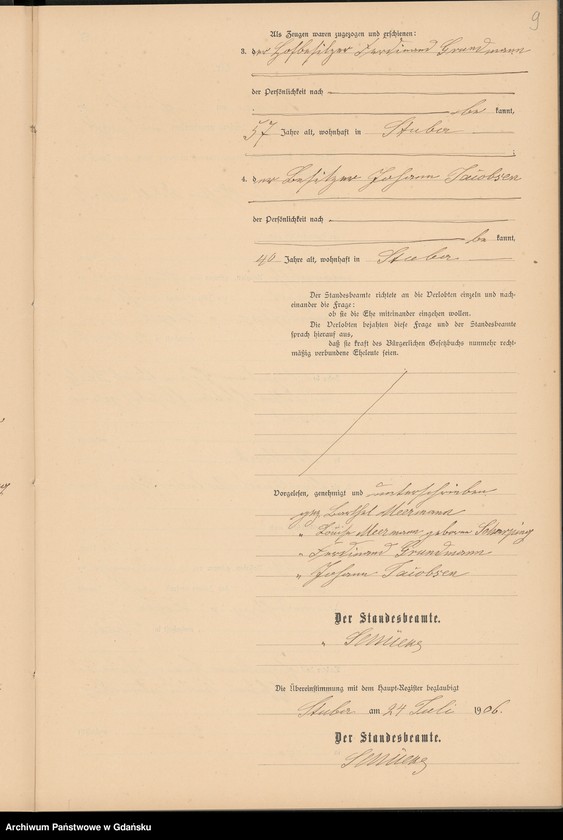 9
Als Zeugen waren zugezogen und erschienen:
3. der Hofbesitzer Ferdinand Grundmann
der Persönlichkeit nach
be kannt,
57 Jahre alt, wohnhaft in Stuba
;
4. der Besitzer Johann Jacobsen
der Persönlichkeit nach
be kannt,
40 Jahre alt, wohnhaft in Stuba
Der Standesbeamte richtete an die Verlobten einzeln und nach-
einander die Frage:
ob sie die Ehe miteinander eingehen wollen.
Die Verlobten bejahten diese Frage und der Standesbeamte
sprach hierauf aus,
daß sie kraft des Bürgerlichen Gesetzbuchs nunmehr recht-
mäßig verbundene Eheleute seien.
Vorgelesen, genehmigt und unterschrieben
gez. Barthel Meermann
" Louise Meermann geborne
" Ferdinand Grundmann
" Johann Jacobsen
Der Standesbeamte.
"
Die Übereinstimmung mit dem Haupt-Register beglaubigt
Stuba am 24 Juli 1906.
Der Standesbeamte.
Archiwum Państwowe w Gdańsku